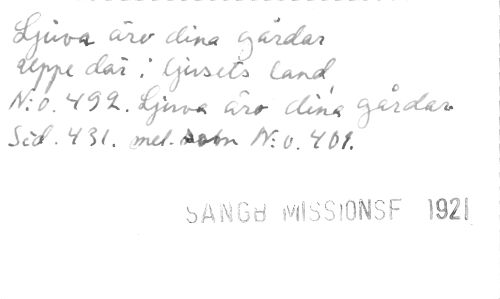 Ljuva äro dina gårdar
uppe där i ljusets land
N:o. 492. Ljuva äro dina gårdar
Sid. 431. mel. som N:o. 401.
SÅNGB MISSIONSF 1921